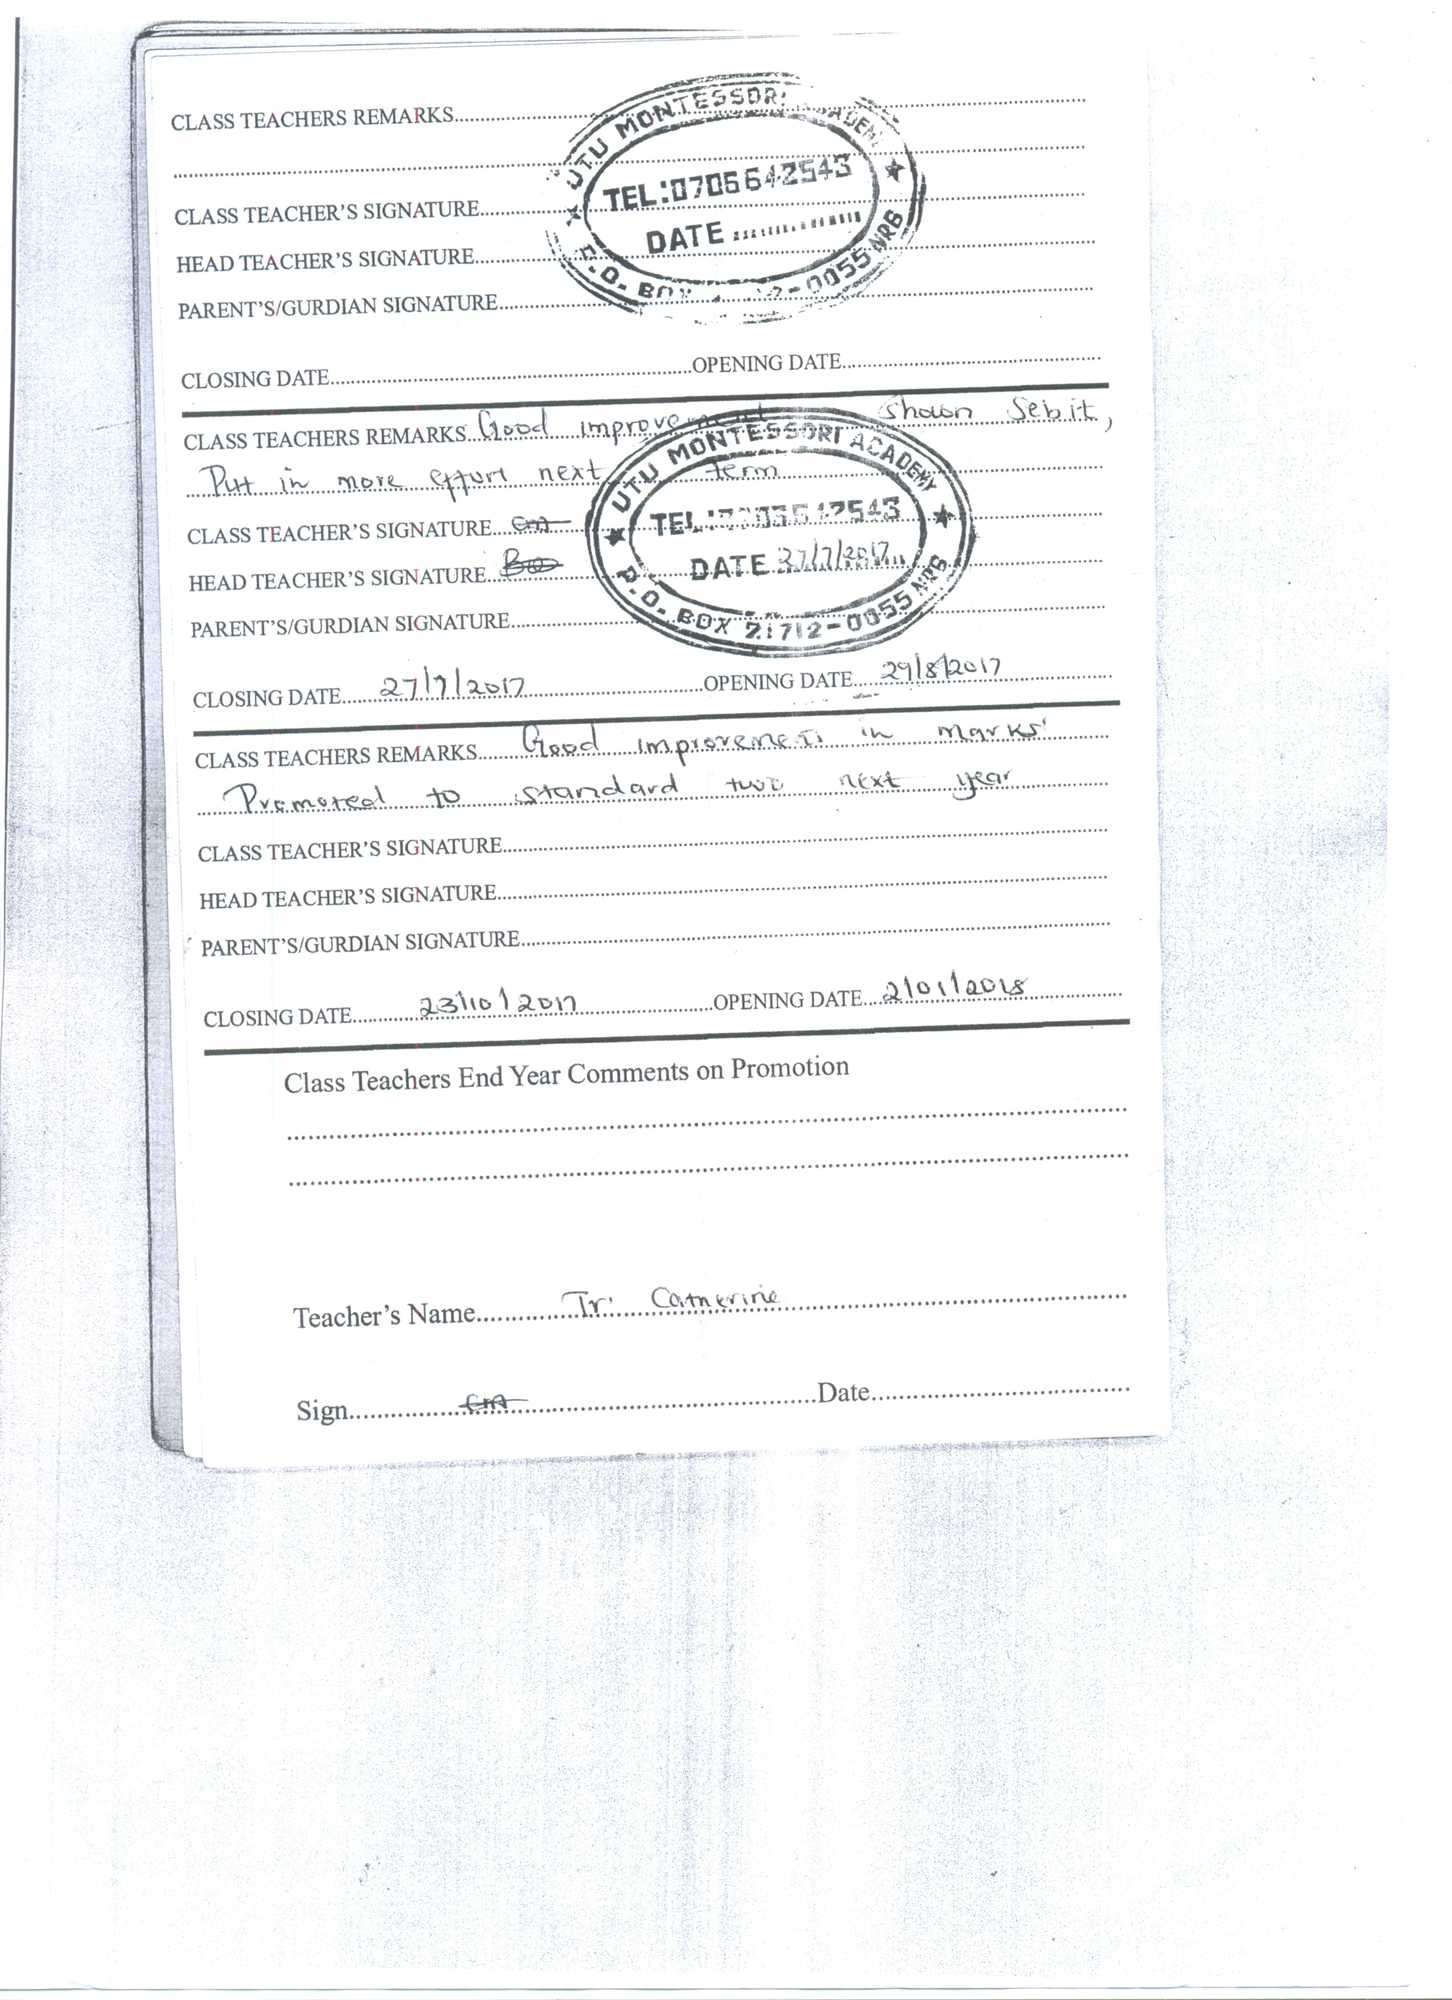 CLASS TEACHERS REMARKS
UTU MONTESSORI
TEL:0706642543
DATE
P.O. BOX 12-0055 NRB
CLASS TEACHER'S SIGNATURE
HEAD TEACHER'S SIGNATURE
PARENT'S/GURDIAN SIGNATURE
CLOSING DATE OPENING DATE
CLASS TEACHERS REMARKS Good improvement shown Sebit,
Put in more effort next term
UTU MONTESSORI ACADEMY
DATE 27/7/2017
P.O. BOX 21712-0055 NRB
CLASS TEACHER'S SIGNATURE
HEAD TEACHER'S SIGNATURE
PARENT'S/GURDIAN SIGNATURE
CLOSING DATE 27/7/2017 OPENING DATE 29/8/2017
CLASS TEACHERS REMARKS Good improvement in marks
Promoted to standard two next year
CLASS TEACHER'S SIGNATURE
HEAD TEACHER'S SIGNATURE
PARENT'S/GURDIAN SIGNATURE
CLOSING DATE 23/10/2017 OPENING DATE 2/01/2018
Class Teachers End Year Comments on Promotion
Teacher's Name Tr. Catherine
Sign Date